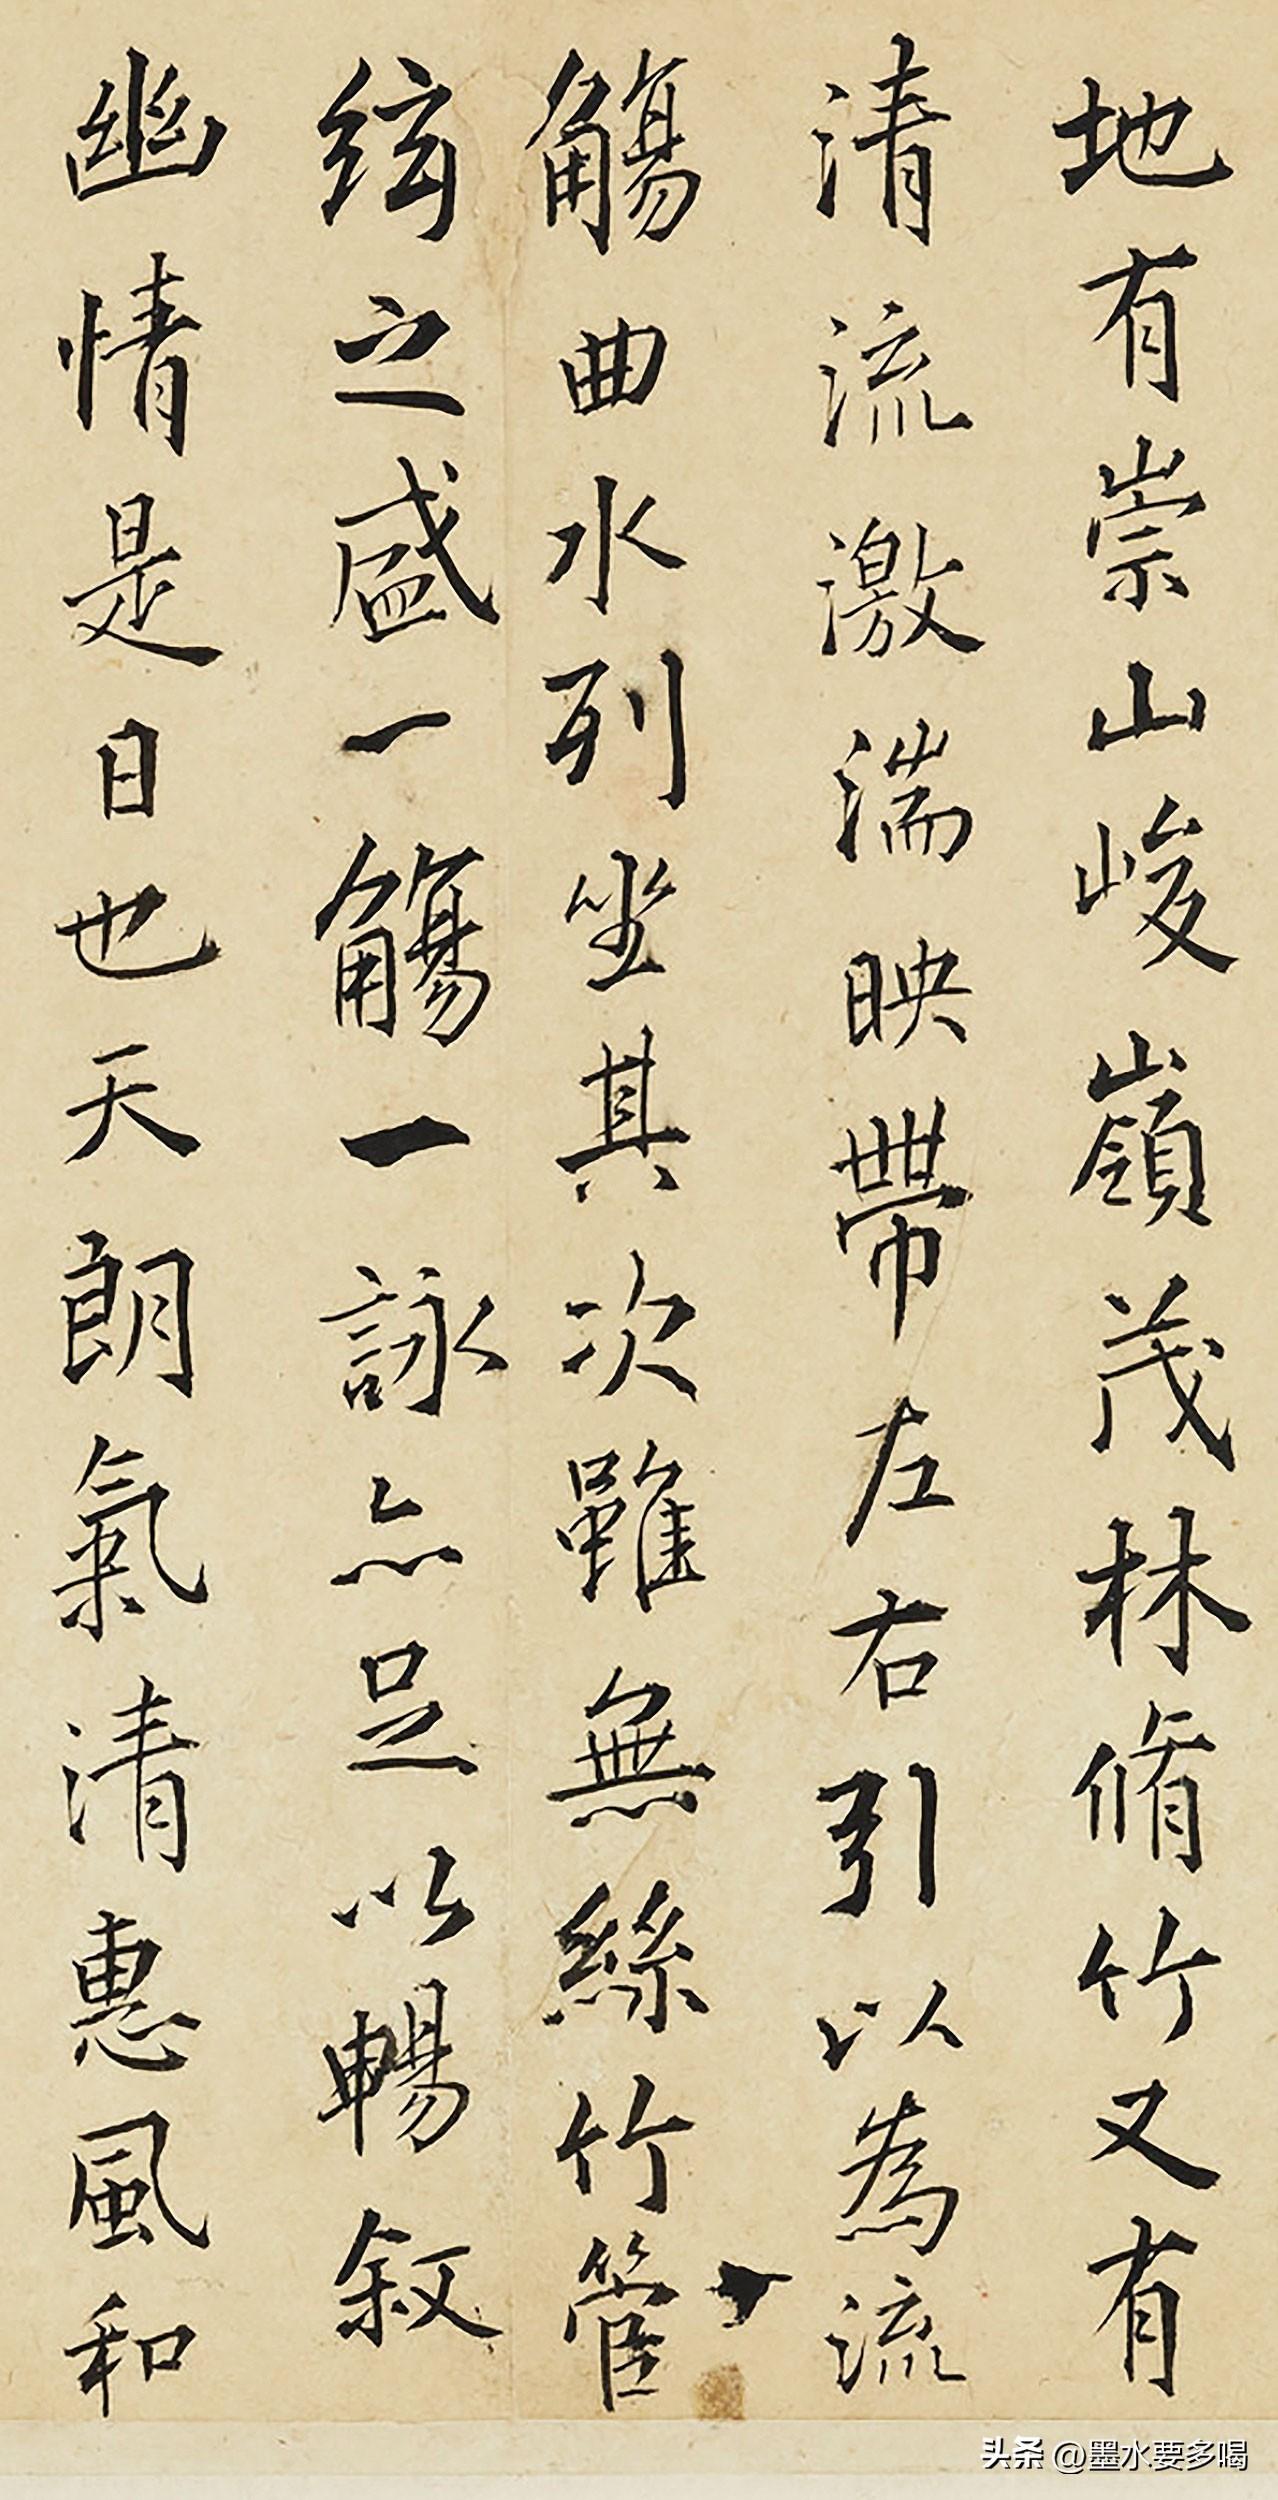 地有崇山峻嶺茂林脩竹又有
清流激湍映帶左右引以為流
觴曲水列坐其次雖無絲竹管
絃之盛一觴一詠亦足以暢叙
幽情是日也天朗氣清惠風和
头条 @墨水要多喝